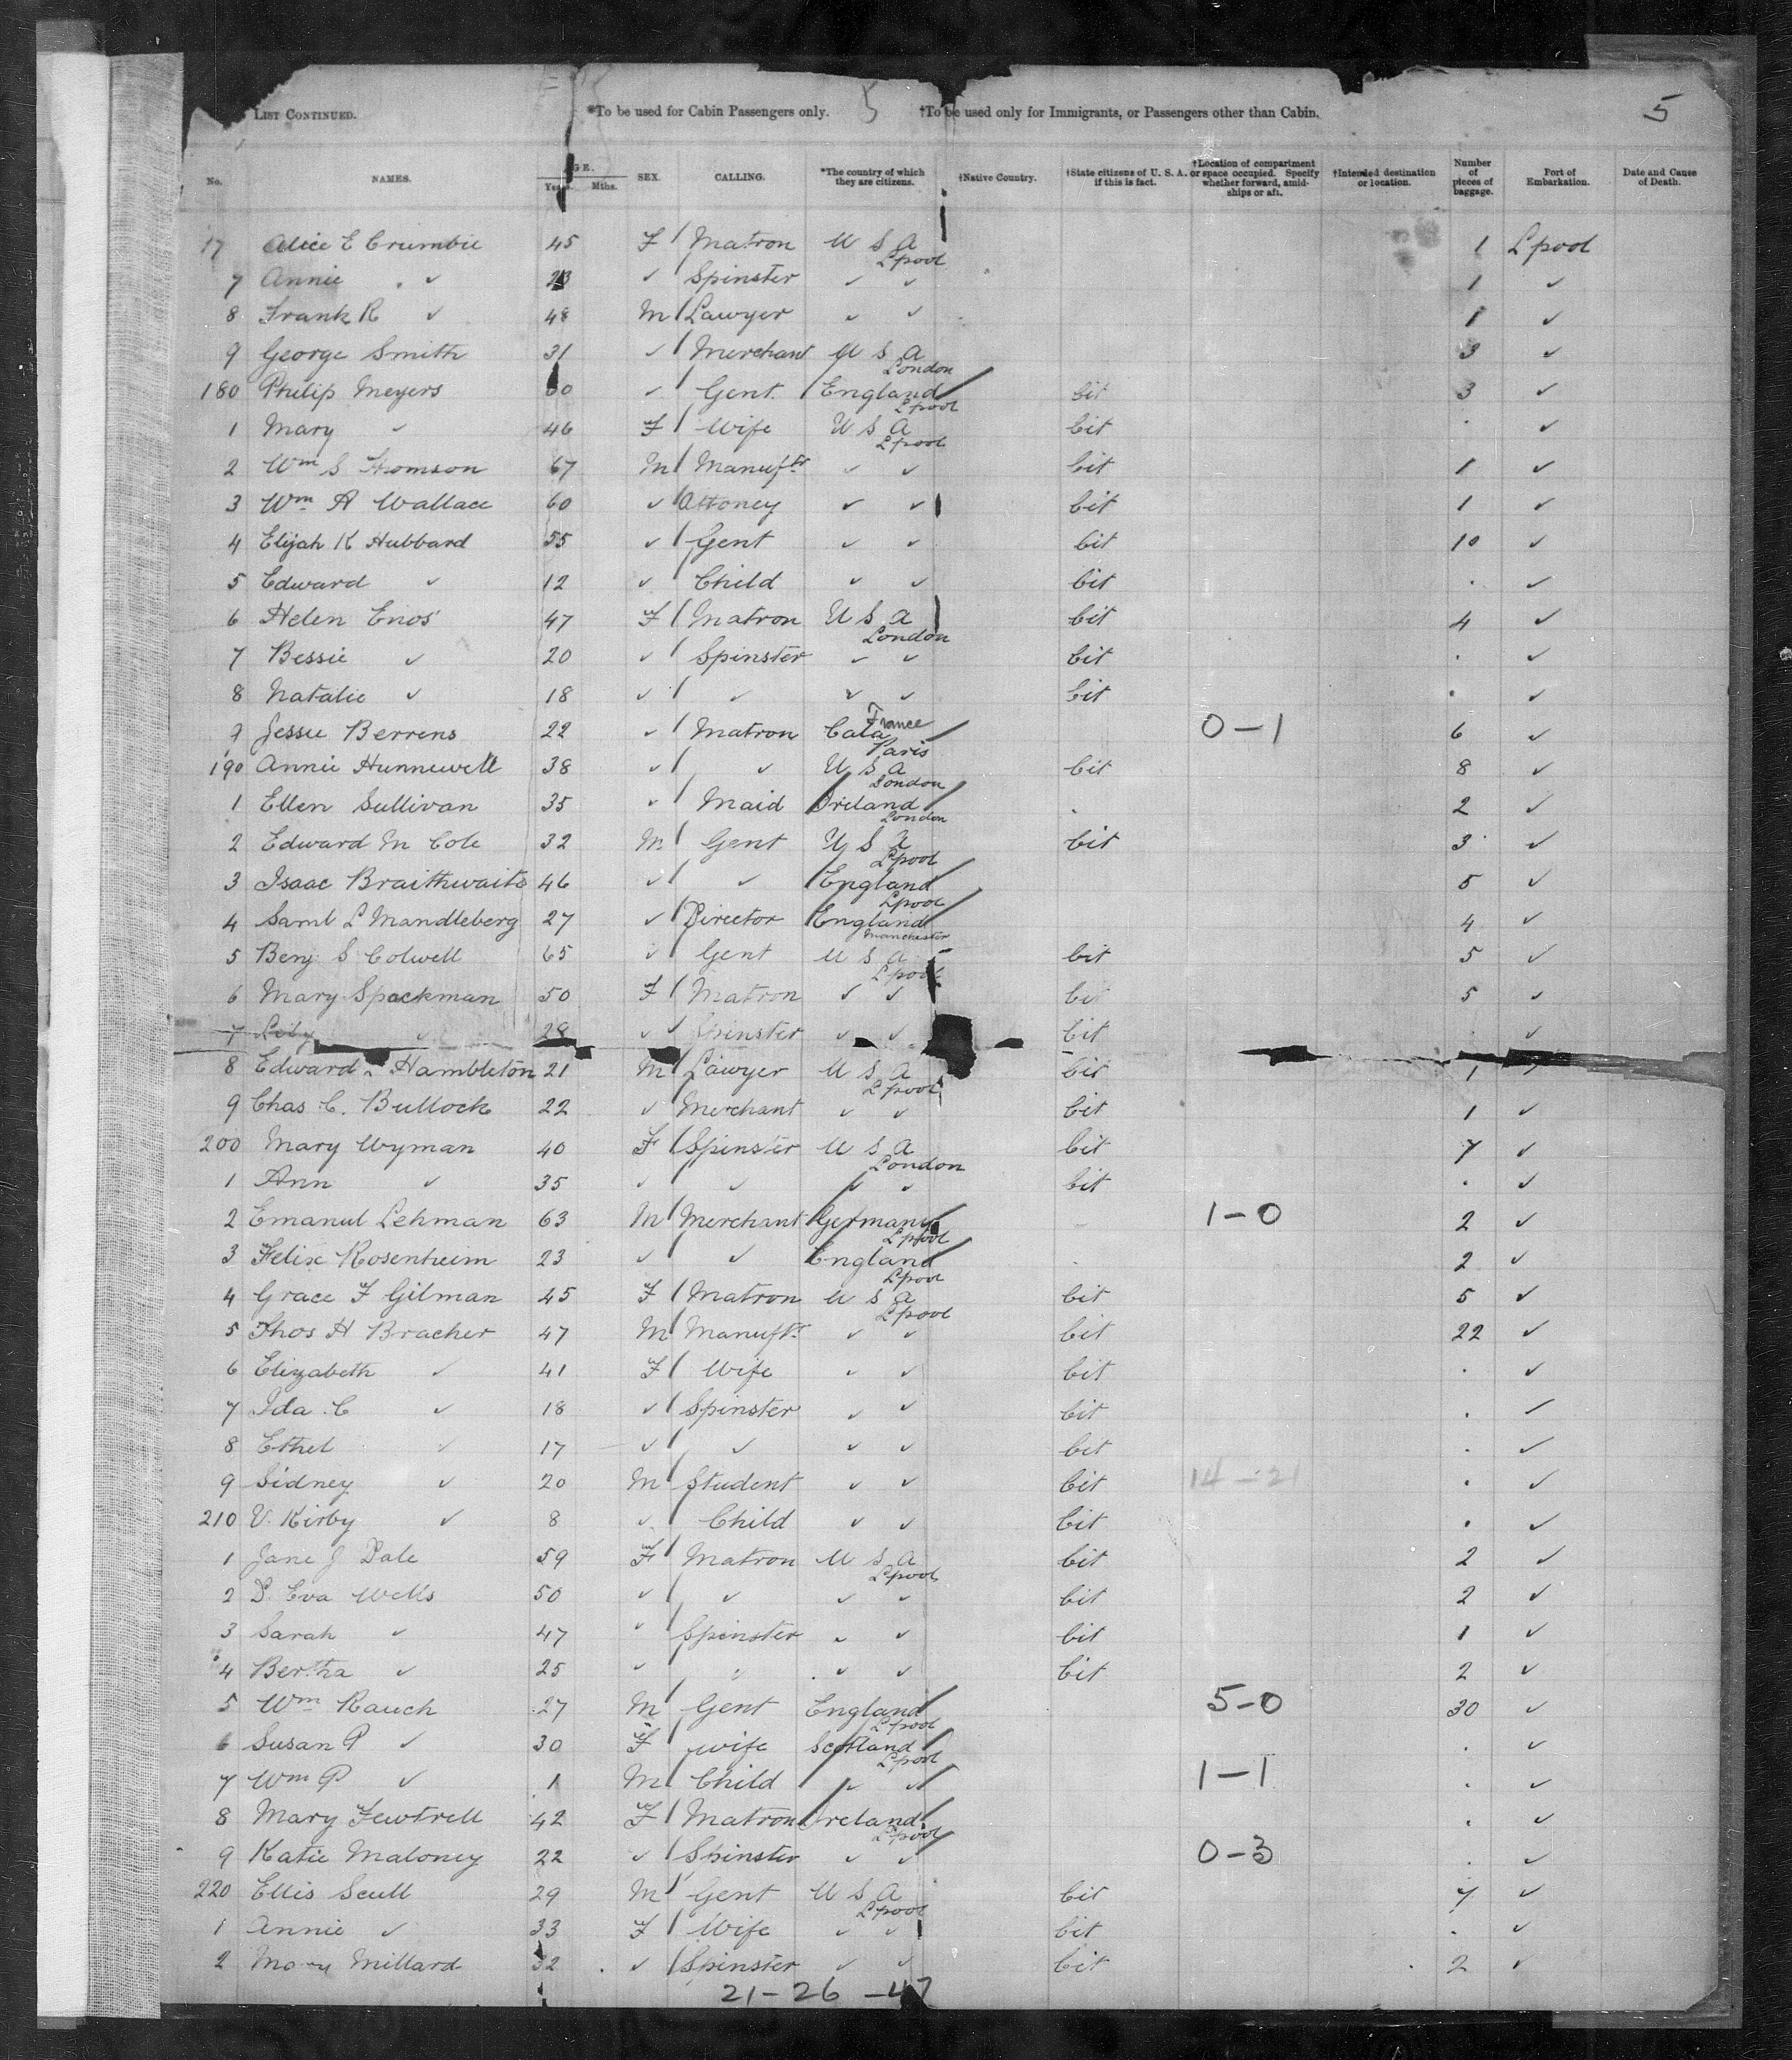 5
LIST CONTINUED. *To be used for Cabin Passengers only. 5 †To be used only for Immigrants, or Passengers other than Cabin.
No. NAMES. AGE. Years. Mths. SEX. CALLING. *The country of which they are citizens. †Native Country. †State citizens of U. S. A. if this is fact. †Location of compartment or space occupied. Specify whether forward, amidships or aft. †Intended destination or location. Number of pieces of baggage. Port of Embarkation. Date and Cause of Death.
17 Alice E Crumbie 45 F Matron U S A Lpool 1 Lpool
7 Annie ✓ ✓ Spinster ✓ ✓ 1 ✓
8 Frank R ✓ 48 M Lawyer ✓ ✓ 1 ✓
9 George Smith 31 ✓ Merchant U S A London 3 ✓
180 Philip Meyers 60 ✓ Gent. England Lpool Cit 3 ✓
1 Mary ✓ 46 F Wife U S A Lpool Cit . ✓
2 Wm S Thomson 67 M Manuftr ✓ ✓ Cit 1 ✓
3 Wm A Wallace 60 ✓ Attoney ✓ ✓ Cit 1 ✓
4 Elijah K Hubbard 55 ✓ Gent ✓ ✓ Cit 10 ✓
5 Edward ✓ 12 ✓ Child ✓ ✓ Cit . ✓
6 Helen Enos 47 F Matron U S A London Cit 4 ✓
7 Bessie ✓ 20 ✓ Spinster ✓ ✓ Cit . ✓
8 Natalie ✓ 18 ✓ ✓ ✓ ✓ Cit . ✓
9 Jessie Berrens 22 ✓ Matron Cala France Paris 0-1 6 ✓
190 Annie Hunnewell 38 ✓ ✓ U S A London Cit 8 ✓
1 Ellen Sullivan 35 ✓ Maid Ireland London 2 ✓
2 Edward M Cole 32 M Gent U S A Lpool Cit 3 ✓
3 Isaac Braithwaite 46 ✓ ✓ England Lpool 5 ✓
4 Saml L Mandleberg 27 ✓ Director England Manchester 4 ✓
5 Benj S Colwell 65 ✓ Gent U S A Lpool Cit 5 ✓
6 Mary Spackman 50 F Matron ✓ ✓ Cit 5 ✓
7 ✓ 28 ✓ Spinster ✓ ✓ Cit . ✓
8 Edward Hambleton 21 M Lawyer U S A Lpool Cit 1 ✓
9 Chas C. Bullock 22 ✓ Merchant ✓ ✓ Cit 1 ✓
200 Mary Wyman 40 F Spinster U S A London Cit 7 ✓
1 Ann ✓ 35 ✓ ✓ ✓ ✓ Cit . ✓
2 Emanul Lehman 63 M Merchant Germany Lpool 1-0 2 ✓
3 Felix Rosenheim 23 ✓ ✓ England Lpool 2 ✓
4 Grace F Gilman 45 F Matron U S A Lpool Cit 5 ✓
5 Thos H Bracher 47 M Manuftr ✓ ✓ Cit 22 ✓
6 Elizabeth ✓ 41 F Wife ✓ ✓ Cit . ✓
7 Ida C ✓ 18 ✓ Spinster ✓ ✓ Cit . ✓
8 Ethel ✓ 17 ✓ ✓ ✓ ✓ Cit . ✓
9 Sidney ✓ 20 M Student ✓ ✓ Cit 14-21 . ✓
210 V. Kirby ✓ 8 ✓ Child ✓ ✓ Cit . ✓
1 Jane J Dale 59 F Matron U S A Lpool Cit 2 ✓
2 D. Eva Wells 50 ✓ ✓ ✓ ✓ Cit 2 ✓
3 Sarah ✓ 47 ✓ Spinster ✓ ✓ Cit 1 ✓
4 Bertha ✓ 25 ✓ ✓ ✓ ✓ Cit 2 ✓
5 Wm Rauch 27 M Gent England Lpool 5-0 30 ✓
6 Susan P ✓ 30 F Wife Scotland Lpool . ✓
7 Wm P ✓ 1 M Child ✓ ✓ 1-1 . ✓
8 Mary Fewtrell 42 F Matron Ireland Lpool . ✓
9 Katie Maloney 22 ✓ Spinster ✓ ✓ 0-3 . ✓
220 Ellis Scull 29 M Gent U S A Lpool Cit 7 ✓
1 Annie ✓ 33 F Wife ✓ ✓ Cit . ✓
2 Mary Millard 32 ✓ Spinster ✓ ✓ Cit 2 ✓
21-26-47